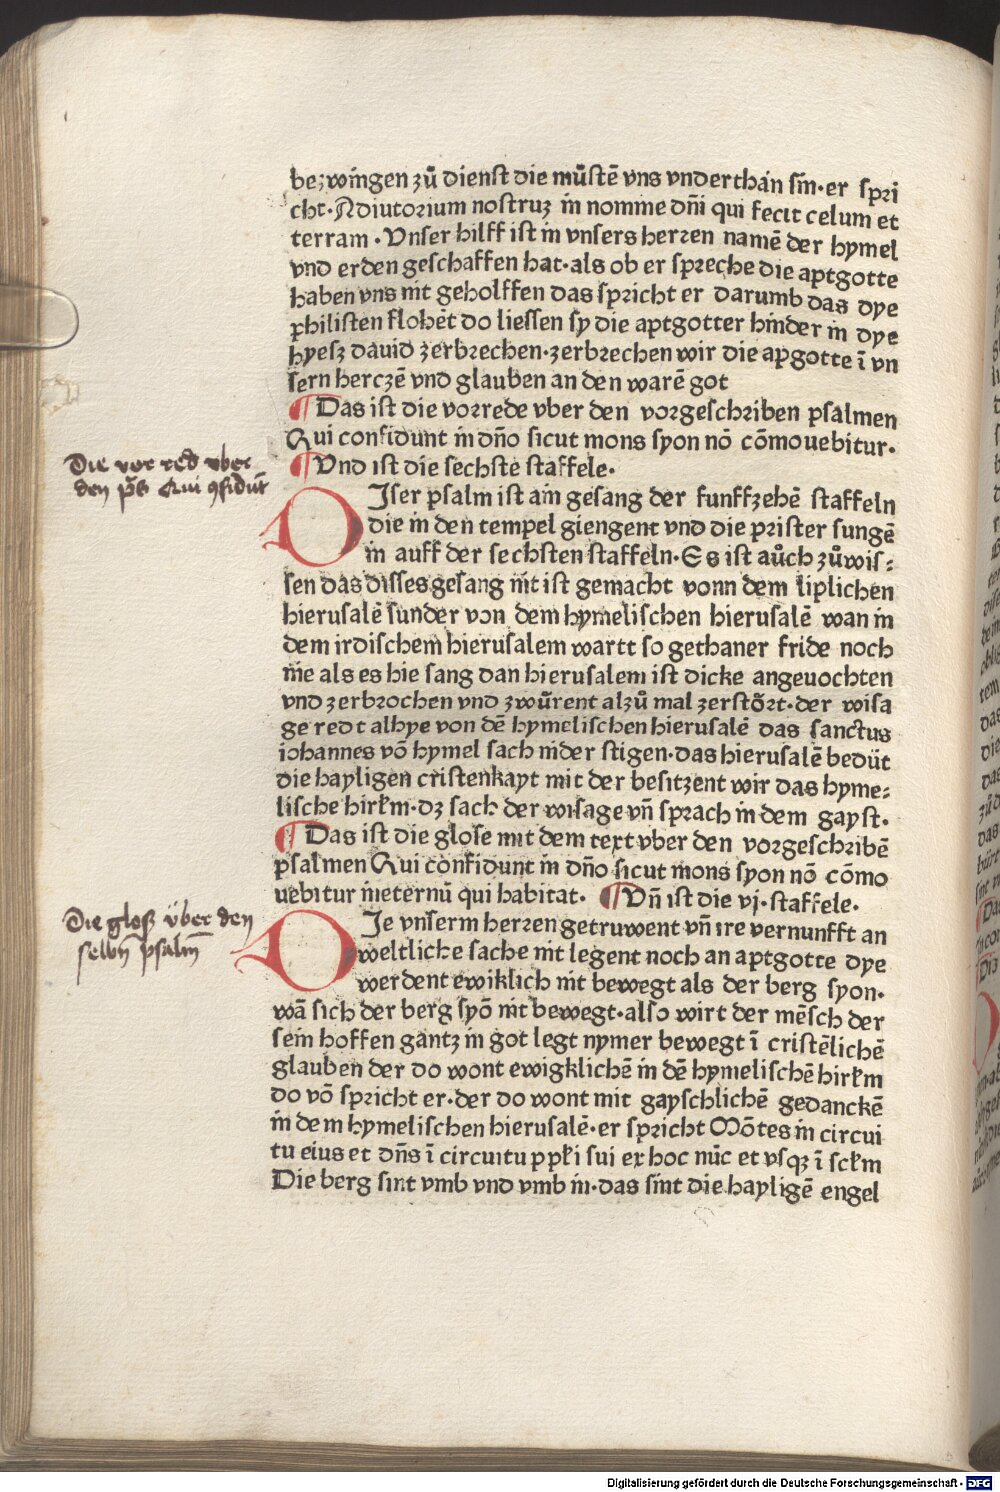 beʒwingen zů dienst die můstē vns vnderthan sin·er spri
cht·Adiutorium nostruʒ in nomine dñi qui fecit celum et
terram·Vnser hilff ist in vnsers herren namē der hymel
vnd erden geschaffen hat·als ob er spreche die aptgotte
haben vns nit geholffen das spricht er darumb das dye
philisten flohēt do liessen sy die aptgotter hinder in dye
hyesz dauid zerbrechen·zerbrechen wir die apgotte ī vn
sern herczē vnd glauben an den warē got
¶Das ist die vorrede vber den vorgeschriben psalmen
Qui confidunt in dño sicut mons syon nō cōmouebitur·
¶Vnd ist die sechste staffele·
Die vor red vber
den ps̄ Qui ꝯfidūt
DIser psalm ist ain gesang der funffzehē staffeln
die in den tempel giengent vnd die prister sungē
in auff der sechsten staffeln·Es ist aůch zůwis⸗
sen das disses gesang nit ist gemacht vonn dem liplichen
hierusalē sunder von dem hymelischen hierusalē wan in
dem irdischem hierusalem wartt so gethaner fride noch
nie als es hie sang dan hierusalem ist dicke angeuochten
vnd zerbrochen vnd zwůrent alzů mal zerstört·der wisa
ge redt alhye von dē hymelischen hierusalē das sanctus
iohannes vō hymel sach nider stigen·das hierusalē bedüt
die hayligen cristenkayt mit der besitzent wir das hyme⸗
lische hirłm·dʒ sach der wisage vñ sprach in dem gayst·
¶Das ist die glose mit dem text vber den vorgeschribē
psalmen Qui confidunt in dño sicut mons syon nō cōmo
uebitur ineternū qui habitat· ¶Vñ ist die vj·staffele·
Die glosʒ über den
selbn̄ psalm̄
DIe vnserm herren getruwent vñ ire vernunfft an
weltliche sache nit legent noch an aptgotte dye
werdent ewiklich nit bewegt als der berg syon·
wā sich der berg syō nit bewegt·also wirt der mēsch der
sein hoffen gantz in got legt nymer bewegt ī cristēlichē
glauben der do wont ewigklichē in dē hymelischē hirłm
do vō spricht er·der do wont mit gayschlichē gedanckē
in dem hymelischen hierusalē·er spricht Mōtes in circui
tu eius et dñs ī circuitu ppłi sui ex hoc nūc et vsqʒ ī sełm
Die berg sint vmb vnd vmb in·das sint die hayligē engel
Digitalisierung gefördert durch die Deutsche Forschungsgemeinschaft - DFG